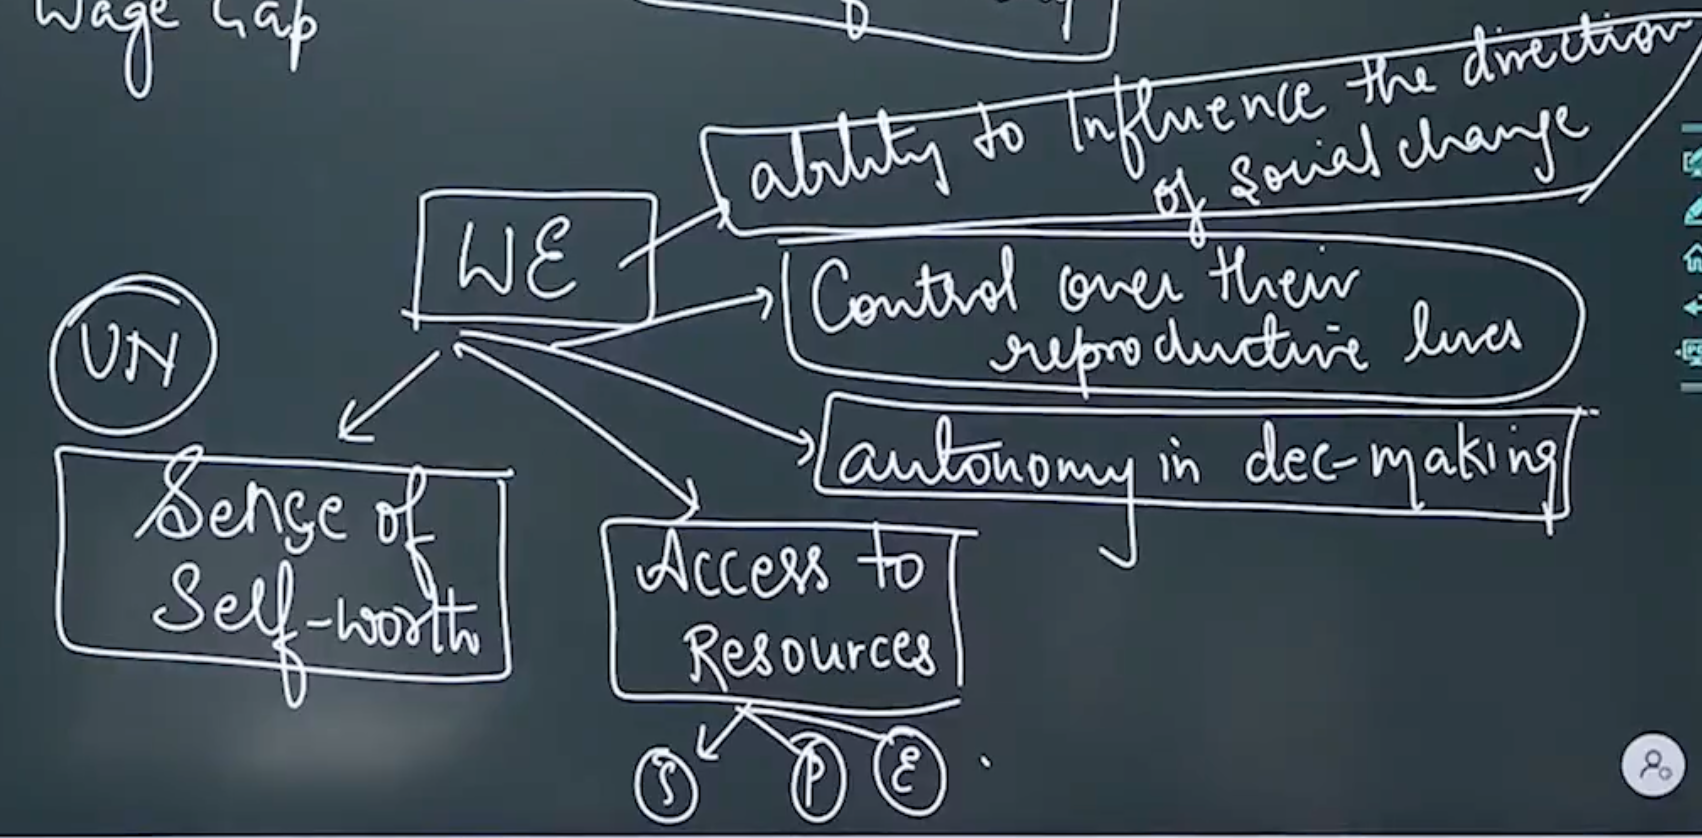 Wage Gap
ability to Influence the direction
of social change
WE
Control over their
reproductive lives
UN
autonomy in dec-making
Sense of
Self-worth
Access to
Resources
S P E